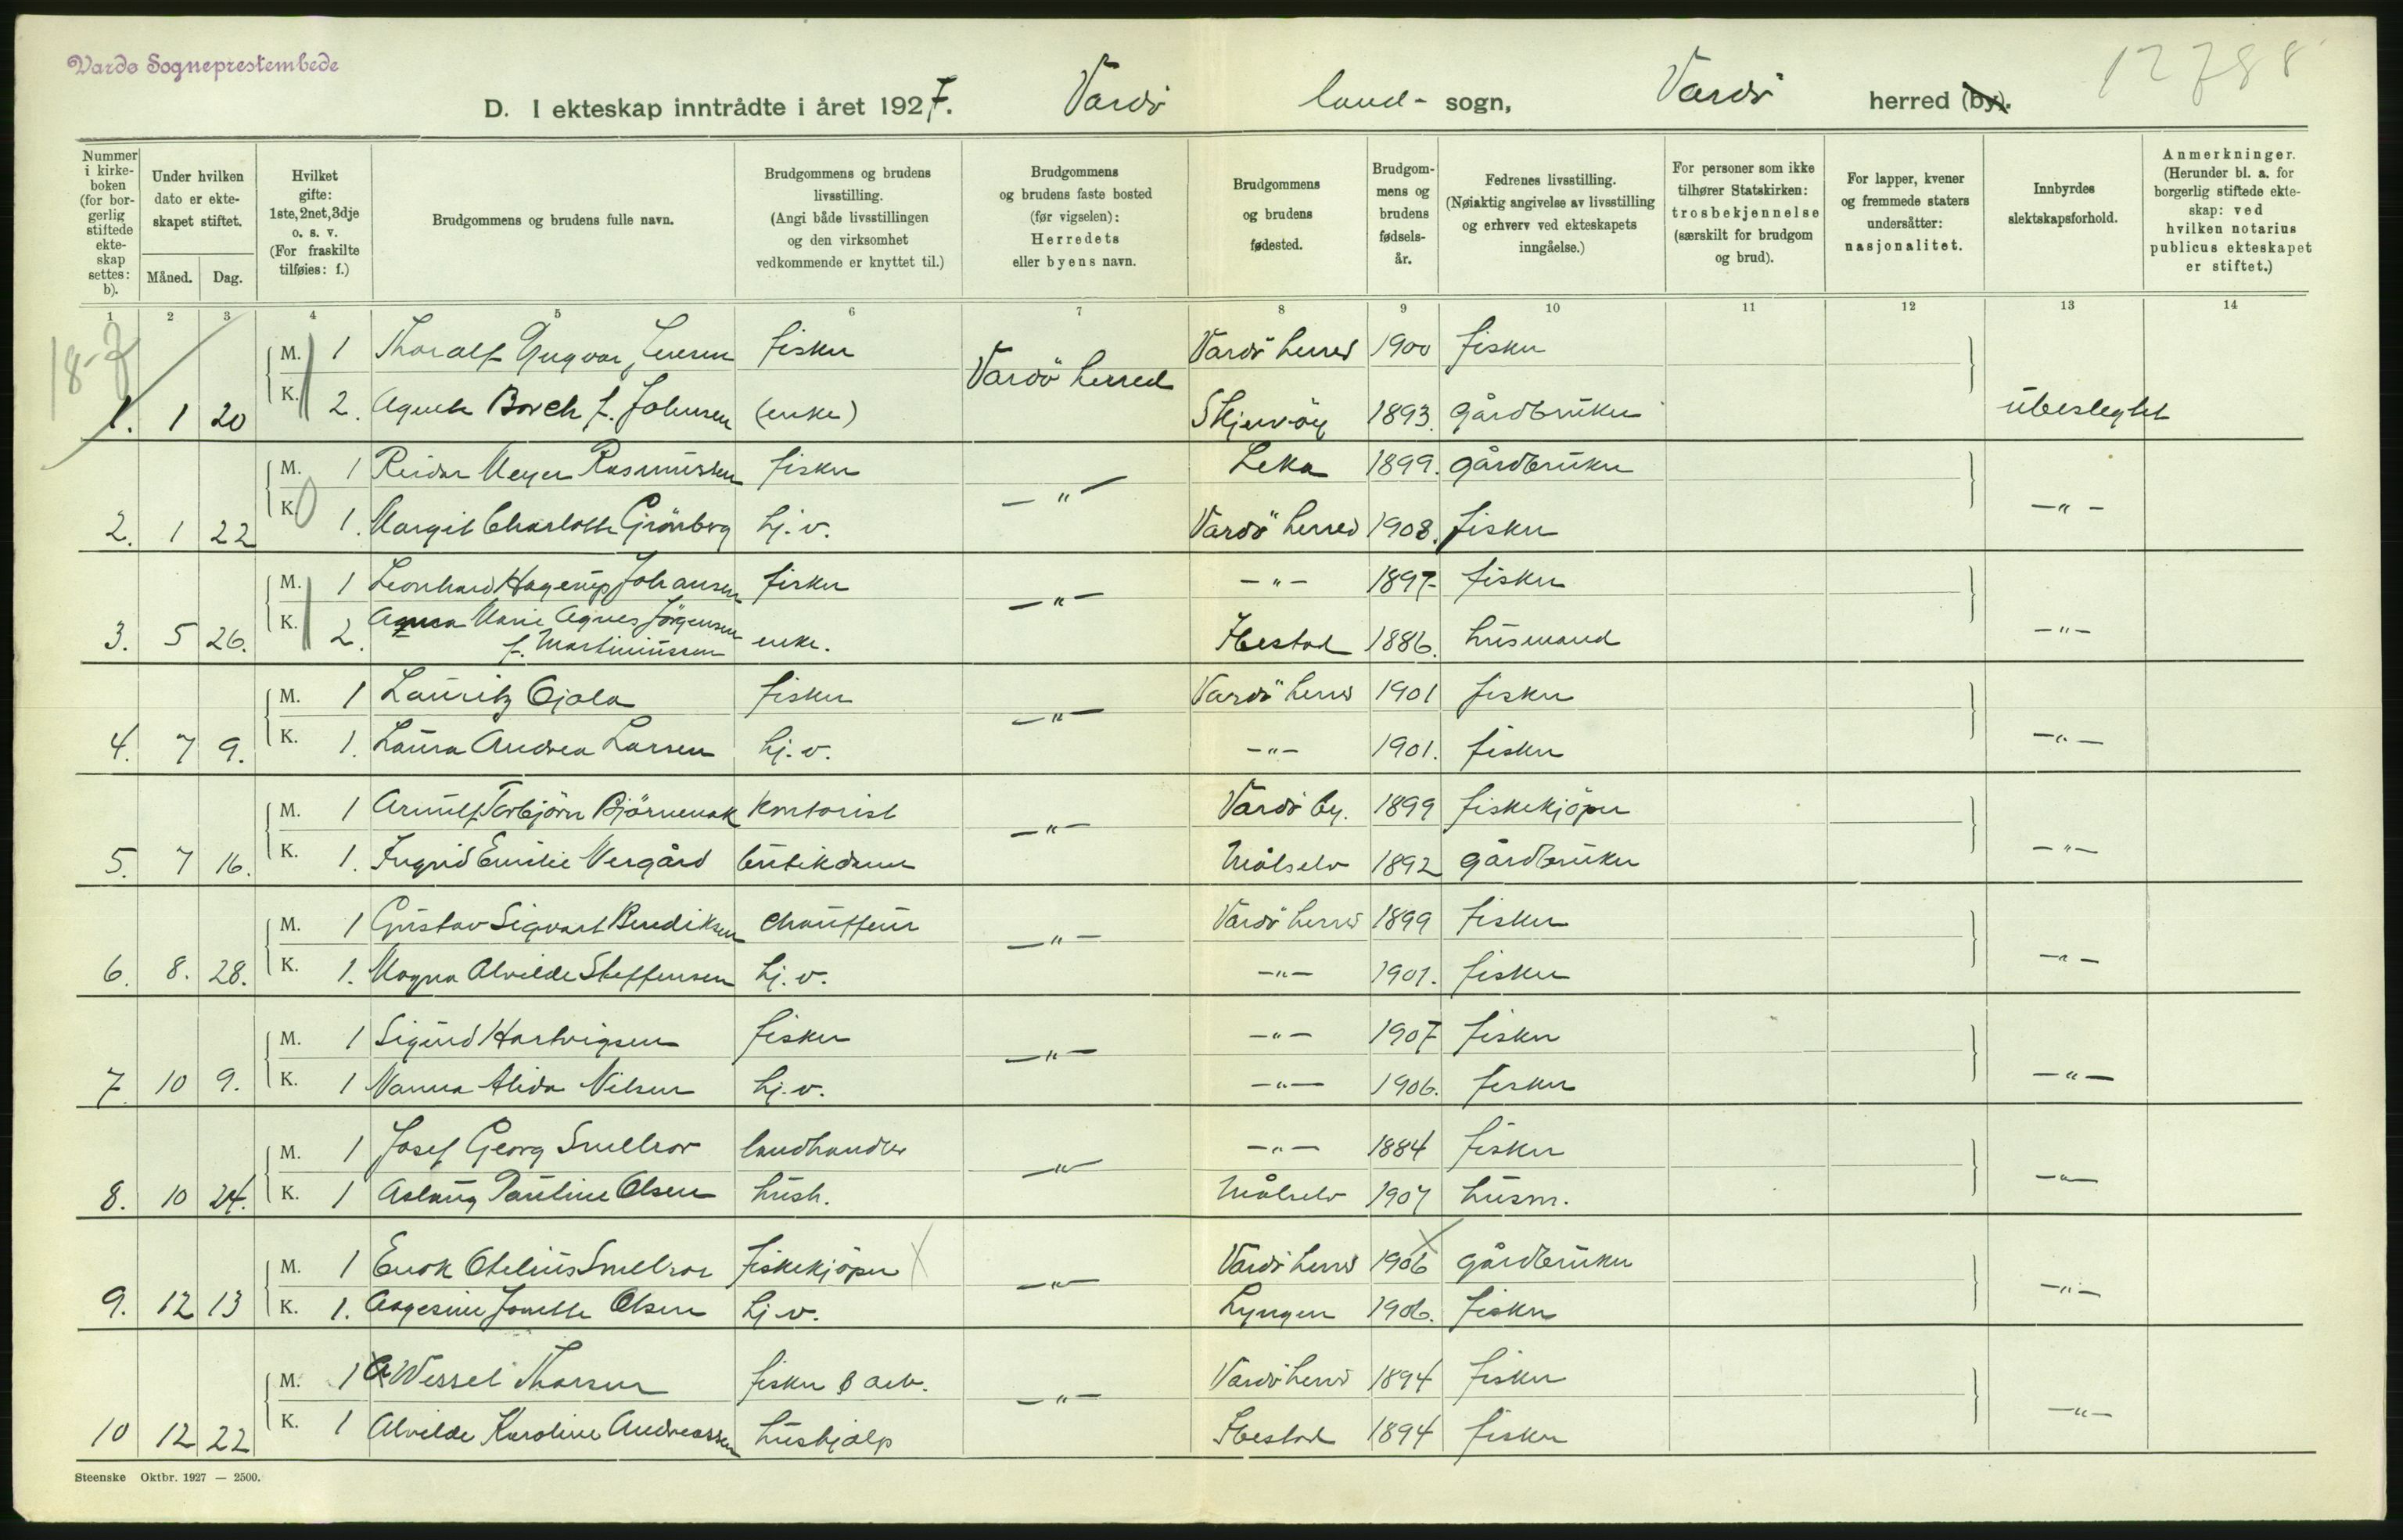 Vardø Sogneprestembede
12788
D. I ekteskap inntrådte i året 1927. Vardö land- sogn, Vardö herred (by).
Nummer i kirkeboken (for borgerlig stiftede ekteskap settes: b).
Under hvilken dato er ekteskapet stiftet.
Måned. Dag.
Hvilket gifte: 1ste, 2net, 3dje o. s. v. (For fraskilte tilføies: f.)
Brudgommens og brudens fulle navn.
Brudgommens og brudens livsstilling. (Angi både livsstillingen og den virksomhet vedkommende er knyttet til.)
Brudgommens og brudens faste bosted (før vigselen): Herredets eller byens navn.
Brudgommens og brudens fødested.
Brudgommens og brudens fødselsår.
Fedrenes livsstilling. (Nøiaktig angivelse av livsstilling og erhverv ved ekteskapets inngåelse.)
For personer som ikke tilhører Statskirken: trosbekjennelse (særskilt for brudgom og brud).
For lapper, kvener og fremmede staters undersåtter: nasjonalitet.
Innbyrdes slektskapsforhold.
Anmerkninger. (Herunder bl. a. for borgerlig stiftede ekteskap: ved hvilken notarius publicus ekteskapet er stiftet.)
1 2 3 4 5 6 7 8 9 10 11 12 13 14
18-7
M. 1 Thoralf Yngvar Iversen fisker Vardö herred Vardö herred 1900 fisker
1. 1 20 K. 2. Agnete Borch f. Johnsen (enke) Skjervöy 1893. gårdbruker ubeslegtet
M. 1 Reidar Meyer Rasmussen fisker -"- Leka 1899. gårdbruker
2. 1 22 K. 1. Margit Charlotte Grönberg hj. v. Vardö herred 1908. fisker -"-
M. 1 Leonhard Hagerup Johansen fisker -"- -"- 1897 fisker
3. 5 26. K. 2. Marie Agnes Jörgensen f. Martinussen enke. Ibestad 1886. husmand -"-
M. 1 Lauritz Ojala fisker -"- Vardö herred 1901 fisker
4. 7 9. K. 1. Laura Andrea Larsen hj. v. -"- 1901. fisker -"-
M. 1 Arnulf Torbjörn Björnenak kontorist -"- Vardö by. 1899 fiskekjöper
5. 7 16. K. 1. Ingrid Emilie Vergård butikdame Målselv 1892 gårdbruker -"-
M. 1 Gustav Sigvart Benediksen chauffeur -"- Vardö herred 1899 fisker
6. 8. 28. K. 1. Magna Alvilde Steffensen hj. v. -"- 1901. fisker -"-
M. 1 Sigurd Hartvigsen fisker -"- -"- 1907 fisker
7. 10 9. K. 1 Nanna Alida Nilsen hj. v. -"- 1906. fisker -"-
M. 1 Josef Georg Smellror landhandler -"- -"- 1884 fisker
8. 10 24. K. 1 Aslaug Pauline Olsen hush. Målselv 1907 husm. -"-
M. 1 Enok Otelius Smellror fiskekjöper -"- Vardö herred 1906 gårdbruker
9. 12 13 K. 1. Aagesine Jonette Olsen hj. v. Lyngen 1906. fisker -"-
M. 1 Wessel Thorsen fisker & arb. -"- Vardö herred 1894 fisker
10 12 22 K. 1 Alvilde Karoline Andreassen hushjælp Ibestad 1894 fisker -"-
Steenske Oktbr. 1927 — 2500.